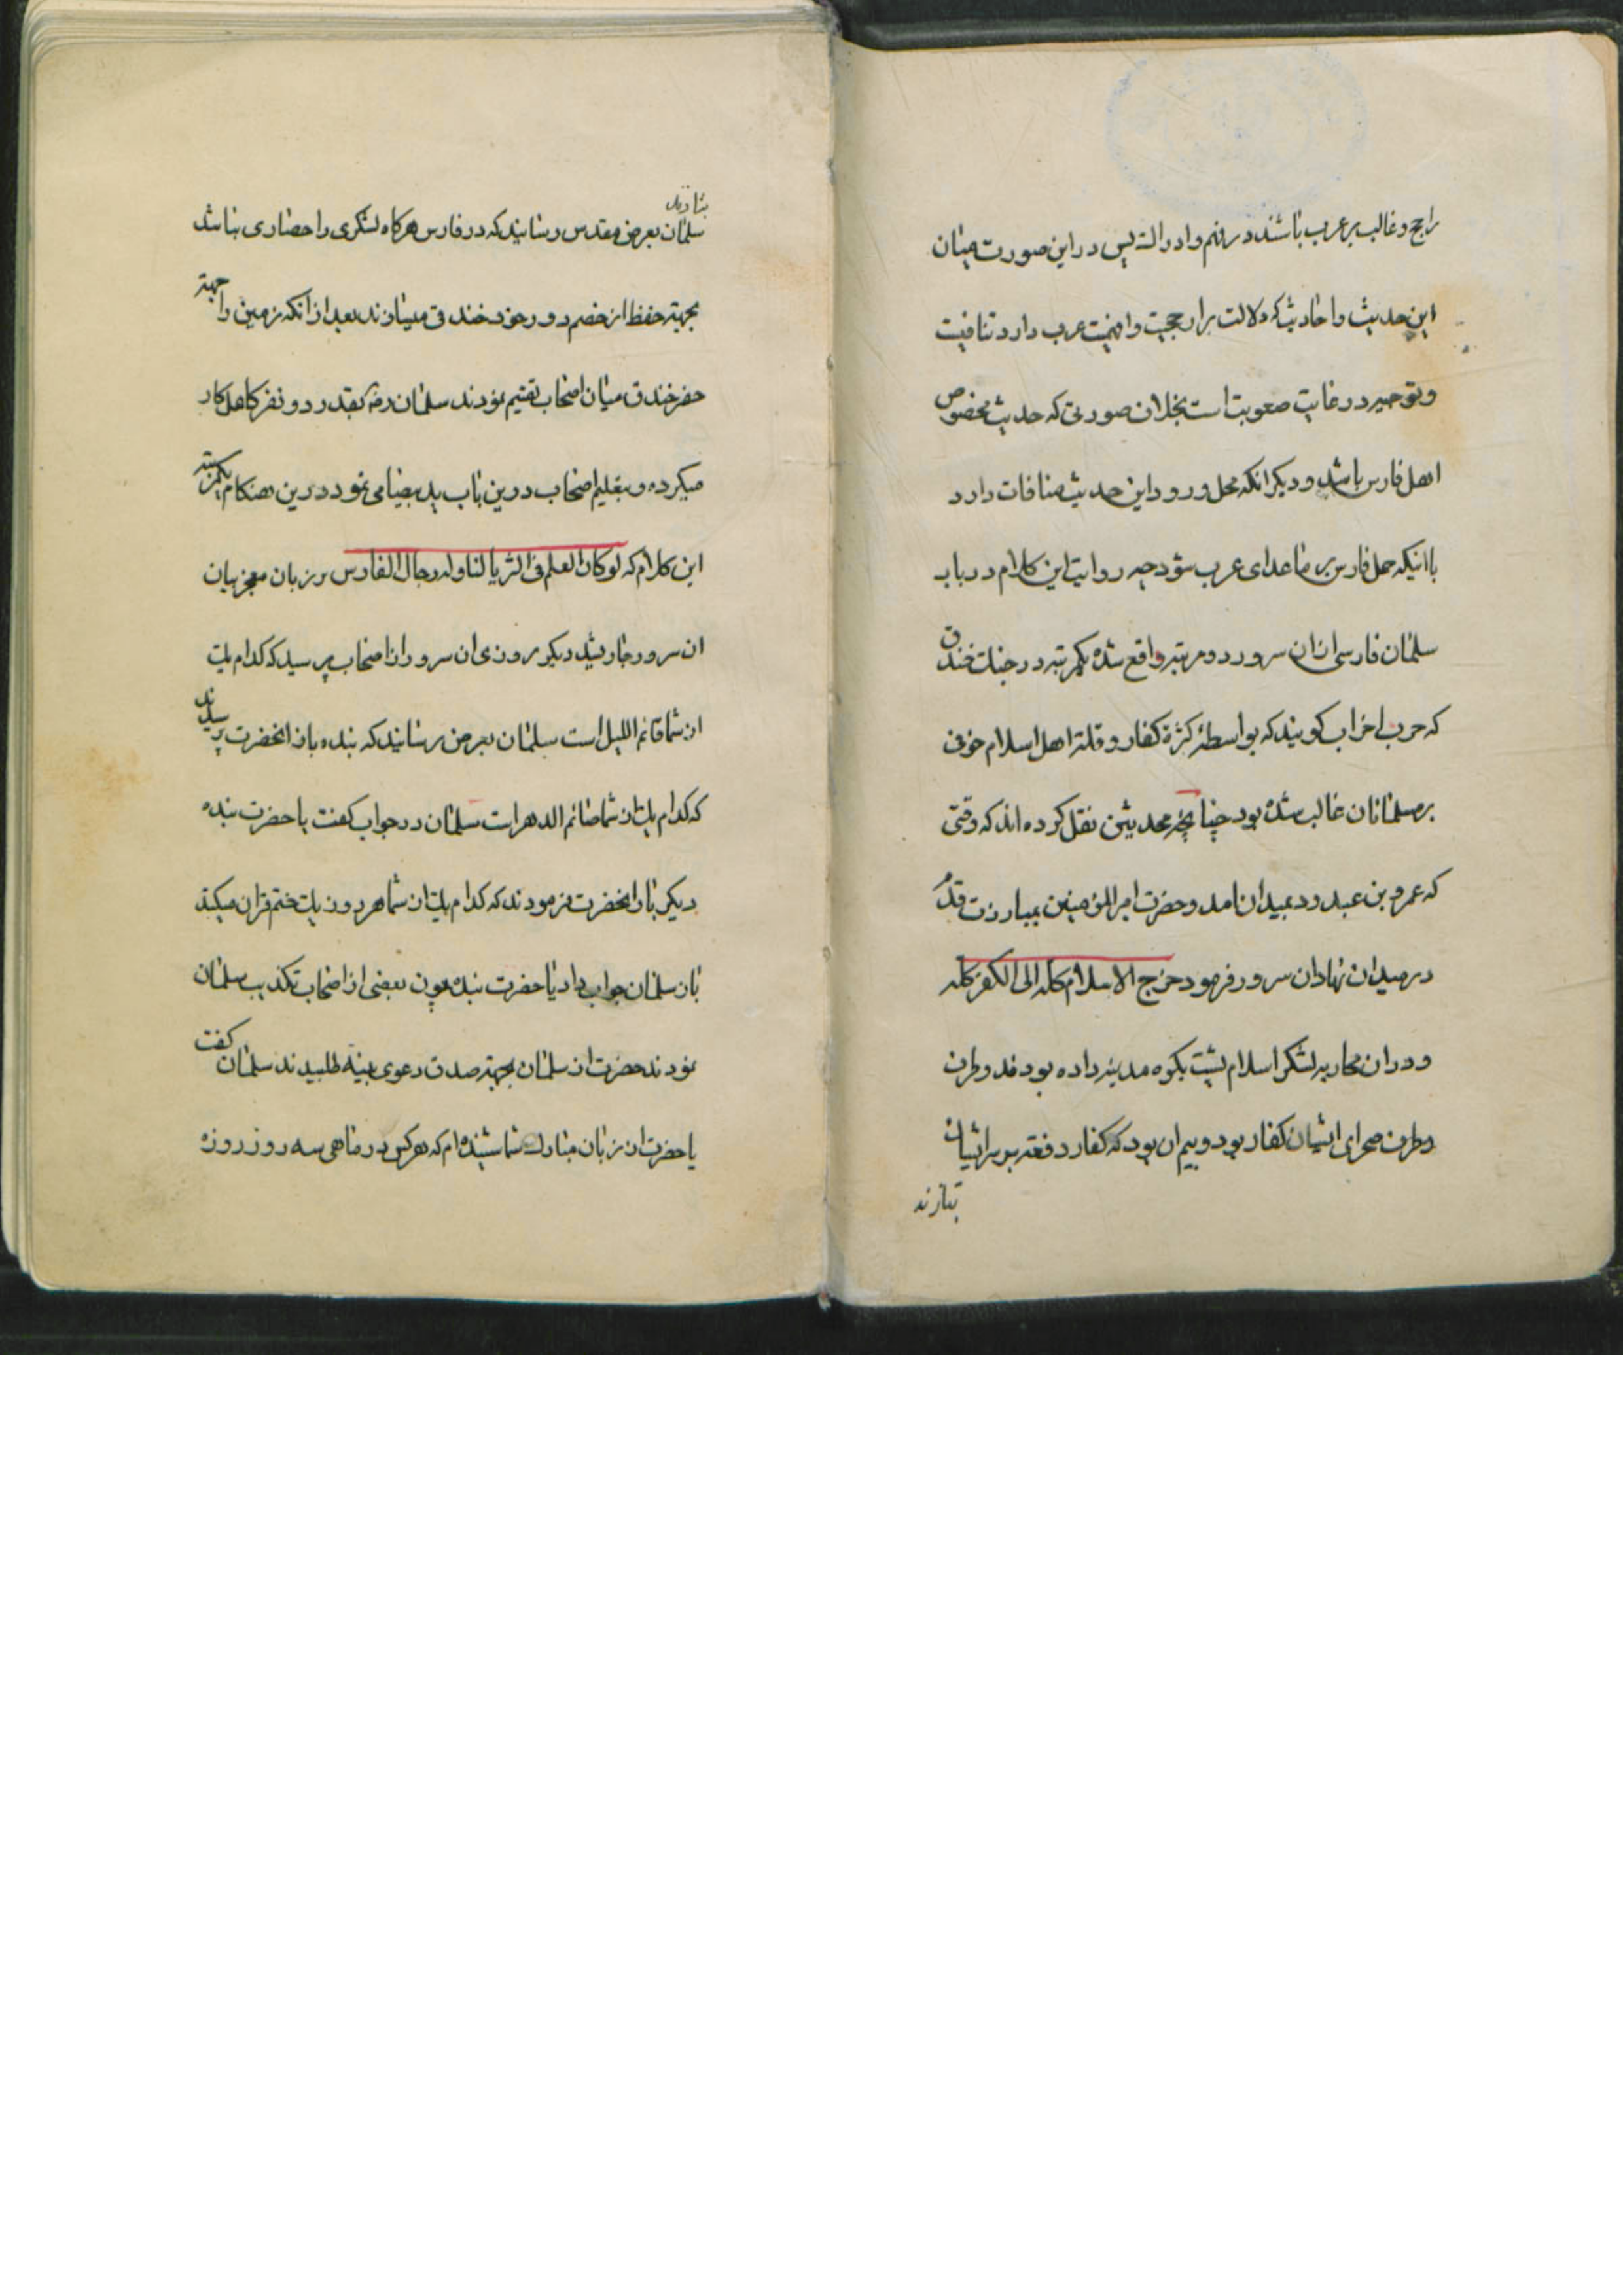 راجح و غالب بر عرب باشند در فهم و ادراك پس در این صورت میان
این حدیث و احادیث که دلالت بر ارجحیت و افهمیت عرب دارد تنافیست
و توجیه در غایت صعوبت است بخلاف صورتی که حدیث مخصوص
اهل فارس باشد و دیگر انکه محل ورود این حدیث منافات دارد
با اینکه حمل فارس بر ماعدای عرب شود چه روایت این کلام در باب
سلمان فارسی از ان سرور دو مرتبه واقع شده یکمرتبه در جنك خندق
که حرب احزاب کویند که بواسطۀ کثرة کفار و قلة اهل اسلام خوفی
بر مسلمانان غالب شده بود چنانچه محدثین نقل کرده اند که وقتی
که عمرو بن عبد ود بمیدان امد و حضرت امیر المؤمنین بمبارزت قدم
در میدان نهاد ان سرور فرمود خرج الاسلام کله الی الکفر کله
و در ان محاربه لشکر اسلام پشت بکوه مدینه داده بودند و طرف
و طرف صحرای ایشان کفار بود و بیم ان بود که کفار دفعه بر سر ایشان
بتازند
بتازند
سلمان بعرض مقدس رسانید که در فارس هرکاه لشکری را حصاری نباشد
بجهة حفظ از خصم دور خود خندق میسازند بعد از انکه زمین را جهة
حفر خندق میان اصحاب تقسیم نمودند سلمان رض بقدر دو نفر کاهل کار
میکرده و بتعلیم اصحاب درین باب ید بیضا می نمود درین هنکام یکمرتبه
این کلام که لو کان العلم فی الثریا لتناوله رجال الفارس بر زبان معجز بیان
ان سرور جاری شد دیکر روزی ان سرور از اصحاب پرسید که کدام یك
از شما قائم اللیل است سلمان بعرض رسانید که بنده باز انحضرت پرسیدند
که کدام یك از شما صائم الدهر است سلمان در جواب کفت یا حضرت بنده
دیکر بار انحضرت فرمودند که کدام یك از شما هر روز یك ختم قران میکند
باز سلمان جواب داد یا حضرت بنده چون بعضی از اصحاب تکذیب سلمان
نمودند حضرت از سلمان بجهة صدق دعوی بینه طلبیدند سلمان کفت
یا حضرت از زبان مبارك شما شنیده ام که هر کس در ماهی سه روز روزه